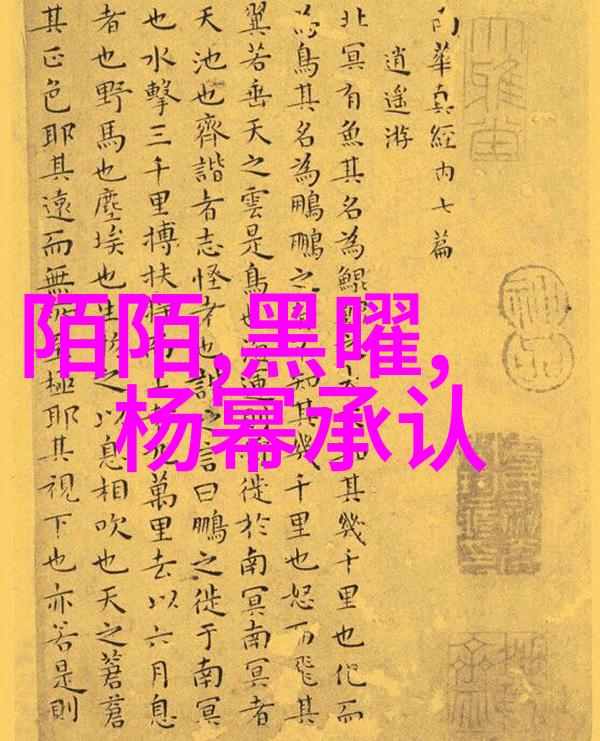 南華真經内七篇
逍遙游
北冥有魚其名為鯤其幾千里也化而
為鳥其名為鵬鵬之知其幾千里也怒而飛其
翼若垂天之雲是鳥也海運徙於南冥南冥者
天池也齊諧者志怪者也諧之言曰鵬之徙于南冥
也水擊三千里搏扶上萬里去以六月息
者也野馬也塵埃也生物之以息相吹也天之蒼蒼
其正色耶其遠而無極耶其視下也亦若是則
大雅堂
神品
陌陌,黑曜,
杨幂承认